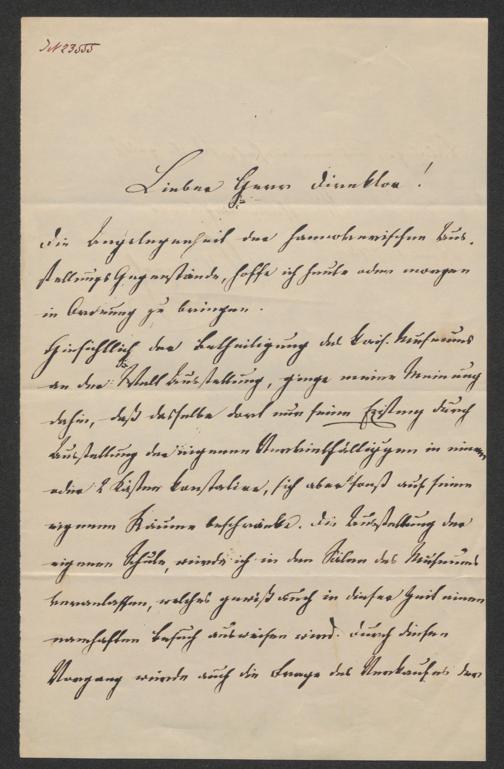 IN 23555
Lieber Herr Direktor!
Die Angelegenheit der hannoverischen Aus-
stellungs Gegenstände, hoffe ich heute oder morgen
in Ordnung zu bringen.
Hinsichtlich der Betheiligung des kais. Museums
an der Welt Ausstellung, ginge meine Meinung
dahin, daß dasselbe dort nur seine Existenz durch
Ausstellung der eigenen Vervielfältigungen in einem
oder 2 Kästen konstatire, sich aber sonst auf seine
eigenen Räume beschränke. Die Ausstellung der
eigenen Schule, würde ich in den Sälen des Museums
veranlassen, welches gewiß auch in dieser Zeit einen
namhaften Besuch aufweisen wird. Durch diesen
Vorgang würde auch die Frage des Verkaufes der